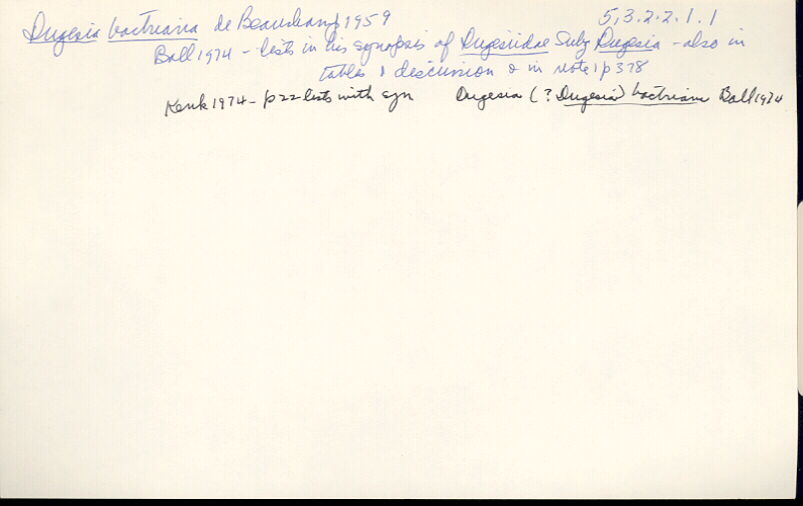 Dugesia bactriana de Beauchamp 1959 5.3.2.2.1.1
Ball 1974 - lists in his synopsis of Dugesiidae Subg Dugesia - also in
tables & discussion & in note 1 p 378
Kenk 1974 - p 22 lists with syn Dugesia (? Dugesia) bactriana Ball 1974